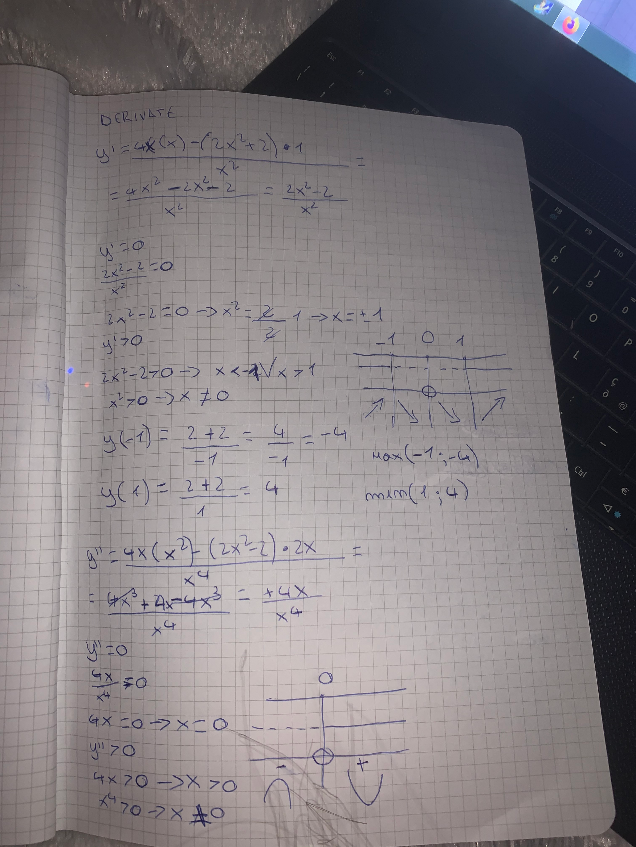 DERIVATE
y' = 4x(x) - (2x²+2)•1 / x² =
= 4x² - 2x² - 2 / x² = 2x² - 2 / x²
y' = 0
2x² - 2 / x² = 0
2x² - 2 = 0 → x² = 2/2 1 → x = ±1
y' > 0
2x² - 2 > 0 → x < -1 ∨ x > 1
x² > 0 → x ≠ 0
-1 0 1
y(-1) = 2+2 / -1 = 4 / -1 = -4
max(-1; -4)
y(1) = 2+2 / 1 = 4
min(1; 4)
y'' = 4x(x²) - (2x² - 2)•2x / x⁴ =
= 4x³ + 4x - 4x³ / x⁴ = +4x / x⁴
y'' = 0
4x / x⁴ = 0
4x = 0 → x = 0
y'' > 0
4x > 0 → x > 0
x⁴ > 0 → x ≠ 0
0
- +